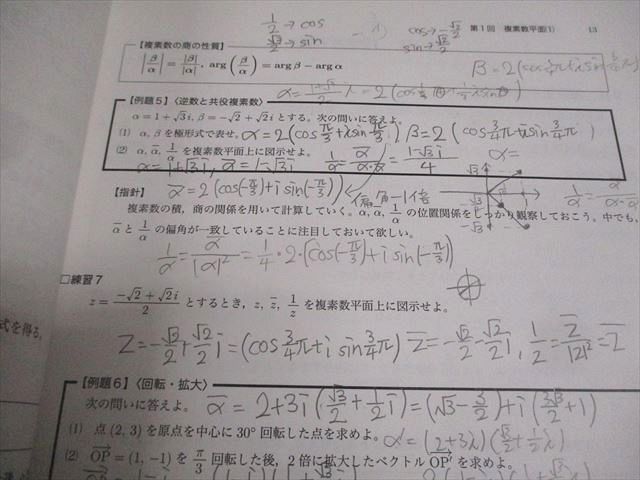 1/2 → cos
√3/2 → sin
cos → -√3/2
sin → √2/2
第1回 複素数平面(1) 13
【複素数の商の性質】
|β/α| = |β|/|α|, arg(β/α) = arg β − arg α
【例題5】〈逆数と共役複素数〉
α = 1 + √3i, β = −√2 + √2i とする。次の問に答えよ。
(1) α, β を極形式で表せ。 α = 2(cos π/3 + i sin π/3) β = 2(cos 3/4π + i sin 3/4π)
(2) α, ᾱ, 1/α を複素数平面上に図示せよ。 1/α = ᾱ/(α·ᾱ) = (1−√3i)/4 α=
α = 1+√3i, ᾱ = 1−√3i
【指針】 ᾱ = 2(cos(−π/3) + i sin(−π/3))
複素数の積，商の関係を用いて計算していく。α, ᾱ, 1/α の位置関係をしっかり観察しておこう。中でも，
ᾱ と 1/α の偏角が一致していることに注目しておいて欲しい。
1/α = ᾱ/|α|² = 1/4・2・(cos(−π/3) + i sin(−π/3))
□練習7
z = (−√2 + √2i)/2 とするとき，z, z̄, 1/z を複素数平面上に図示せよ。
Z = −√2/2 + √2/2 i = (cos 3/4π + i sin 3/4π) Z̄ = −√2/2 − √2/2 i, 1/Z = Z̄/|Z|² = Z̄
式を得る，
【例題6】〈回転・拡大〉
次の問いに答えよ。 ᾱ = 2+3i (√3/2 + 1/2 i) = (√3 − 3/2) + i(3√3/2 + 1)
(1) 点(2, 3)を原点を中心に30°回転した点を求めよ。 α' = (2+3i)(√3/2 + 1/2 i)
(2) OP→ = (1, −1) を π/3 回転した後，2倍に拡大したベクトル OP'→ を求めよ。